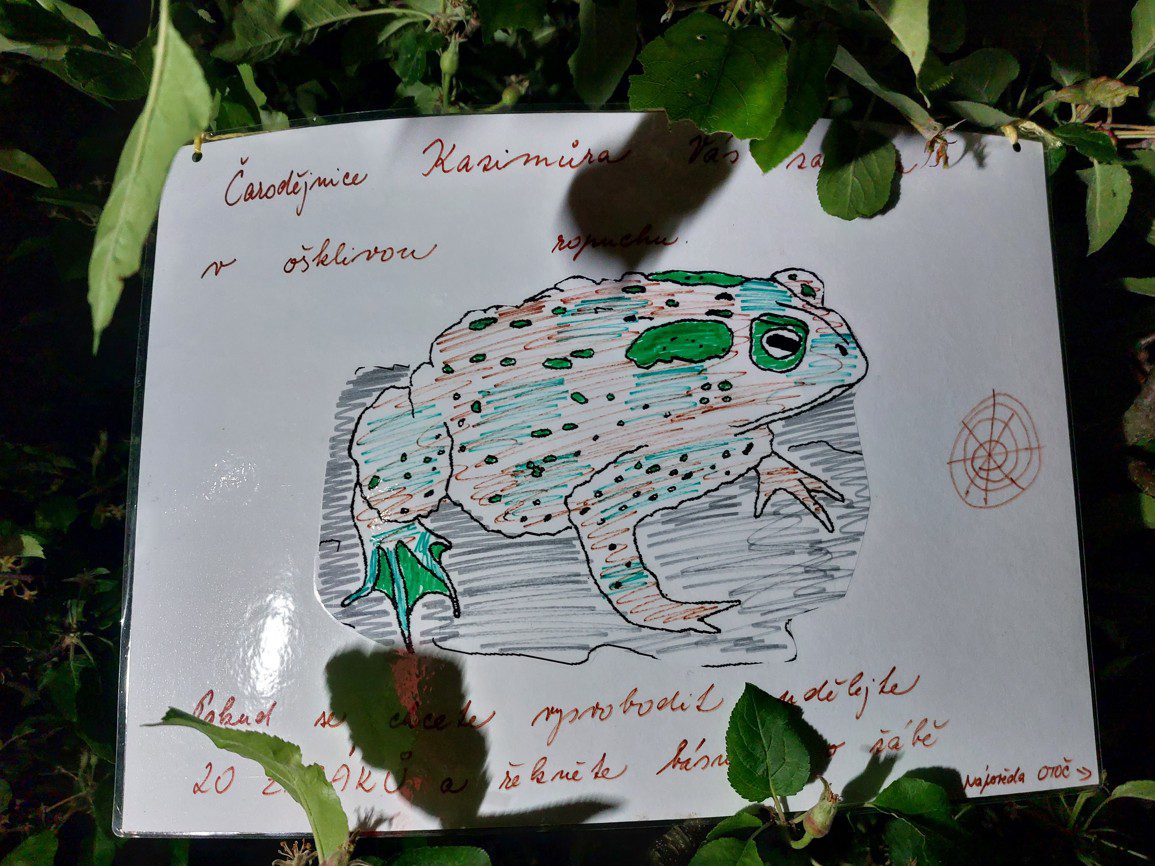 Čarodějnice Kasimůra Vás
v ošklivou ropuchu.
Pokud se chcete vysvobodit udělejte
20 a řekněte o žábě
Nápověda OTOČ →